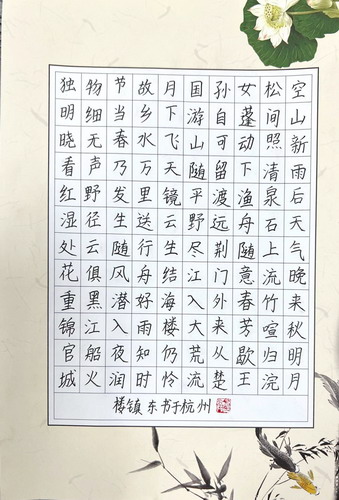 空山新雨后天气晚来秋明月
松间照清泉石上流竹喧归浣
女莲动下渔舟随意春芳歇王
孙自可留渡远荆门外来从楚
国游山随平野尽江入大荒流
月下飞天镜云生结海楼仍怜
故乡水万里送行舟好雨知时
节当春乃发生随风潜入夜润
物细无声野径云俱黑江船火
独明晓看红湿处花重锦官城
楼镇东书于杭州